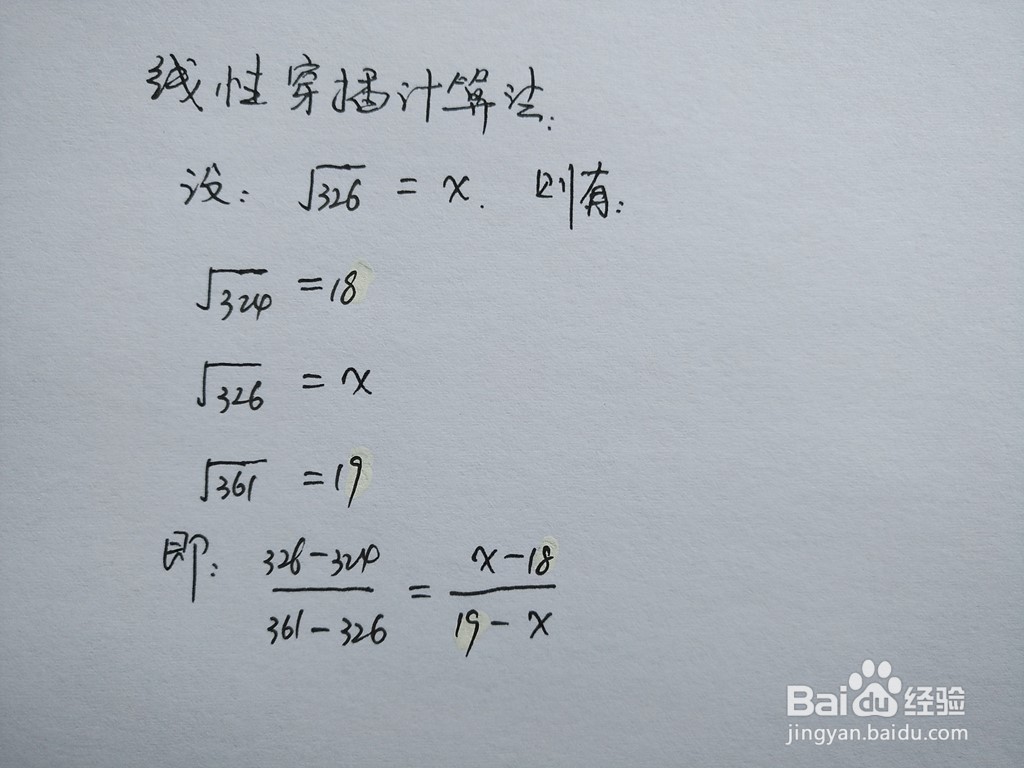 线性穿插计算法:
设: √326 = x. 则有:
√324 = 18
√326 = x
√361 = 19
即: (326-324)/(361-326) = (x-18)/(19-x)
Baidu经验
jingyan.baidu.com